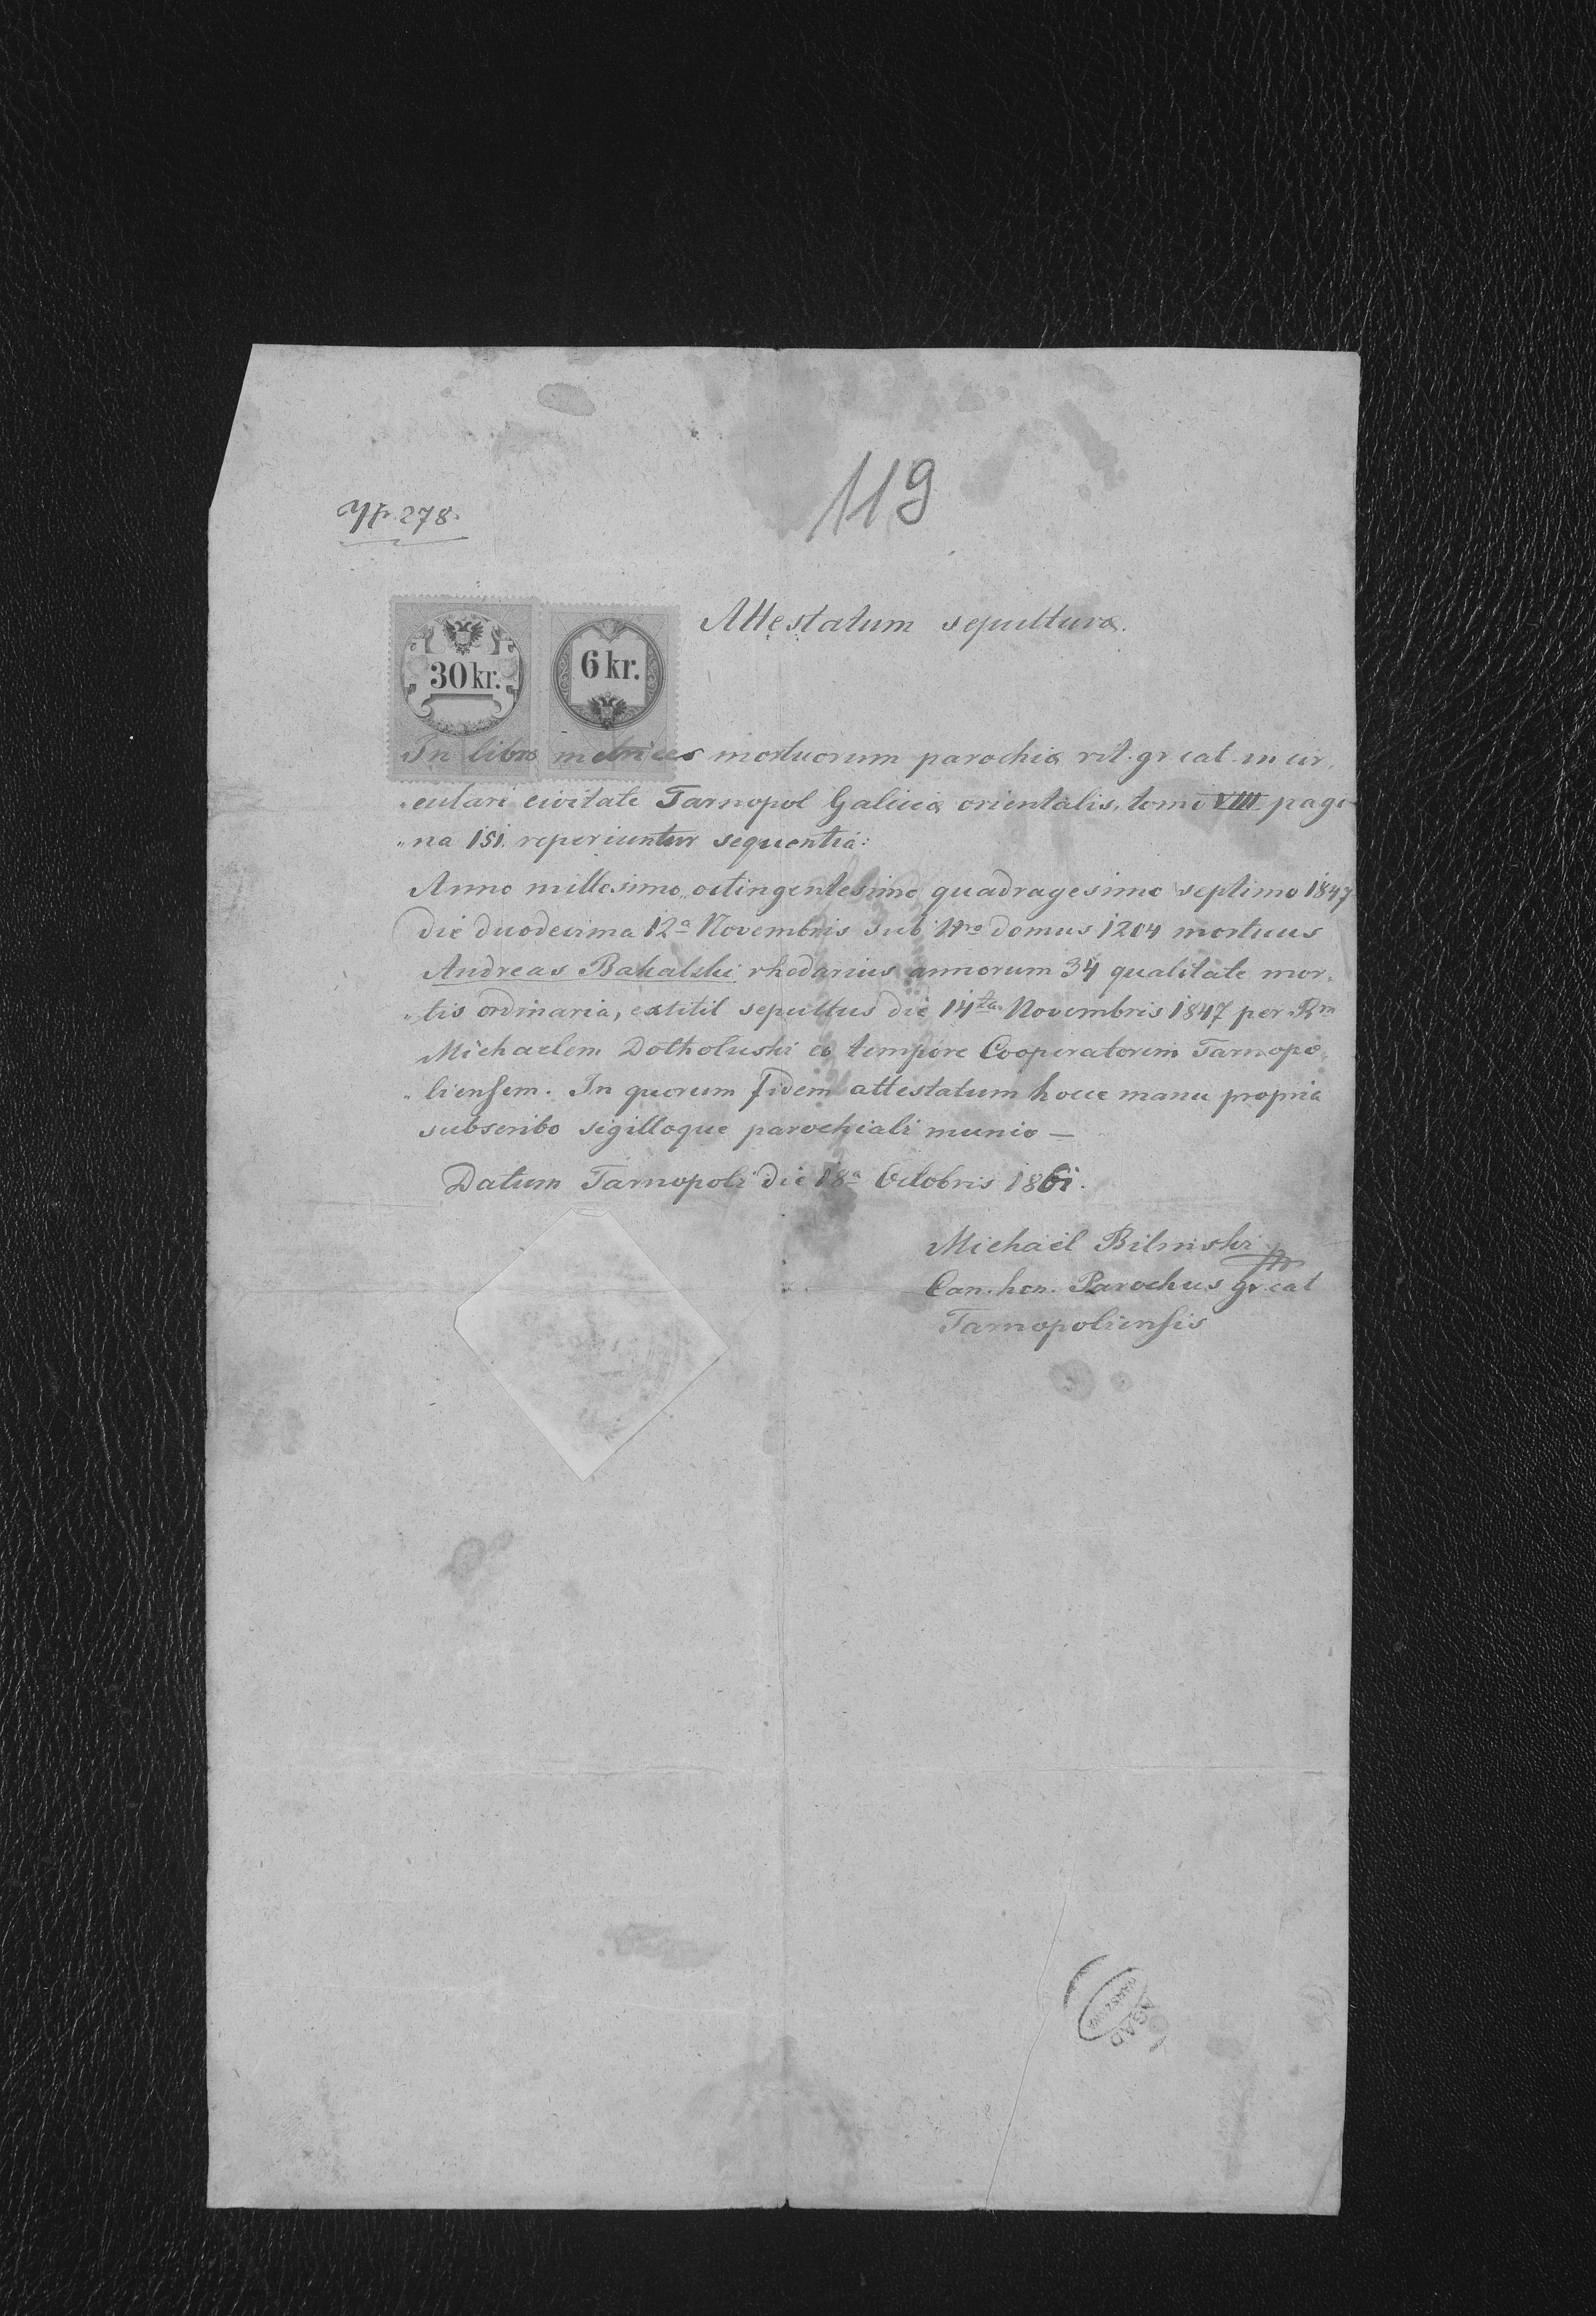 119
Nr. 278.
30 kr.
6 kr.
Attestatum sepulturæ.
In libro metrices mortuorum parochiæ rit. gr cat. in cir,
„culari civitate Tarnopol Galiciæ orientalis, tomi VIII pagi-
„na 151. reperiuntur sequentia:
Anno millesimo octingentesimo quadragesimo septimo 1847
die duodecima 12a Novembris sub Nro domus 1204 mortuus
Andreas Bakalski rhedarius annorum 34 qualitate mor„
„tis ordinaria, extitit sepultus die 14ta Novembris 1847 per Rm
Michaelem Dotholuski eo tempore Cooperatorem Tarnopo„
„liensem. In quorum fidem attestatum hocce manu propria
subscribo sigilloque parochiali munio —
Datum Tarnopoli die 18a Octobris 1861.
Michaël Bilinski
Can. hon. Parochus gr. cat
Tarnopoliensis
AGAD
WARSZAWA